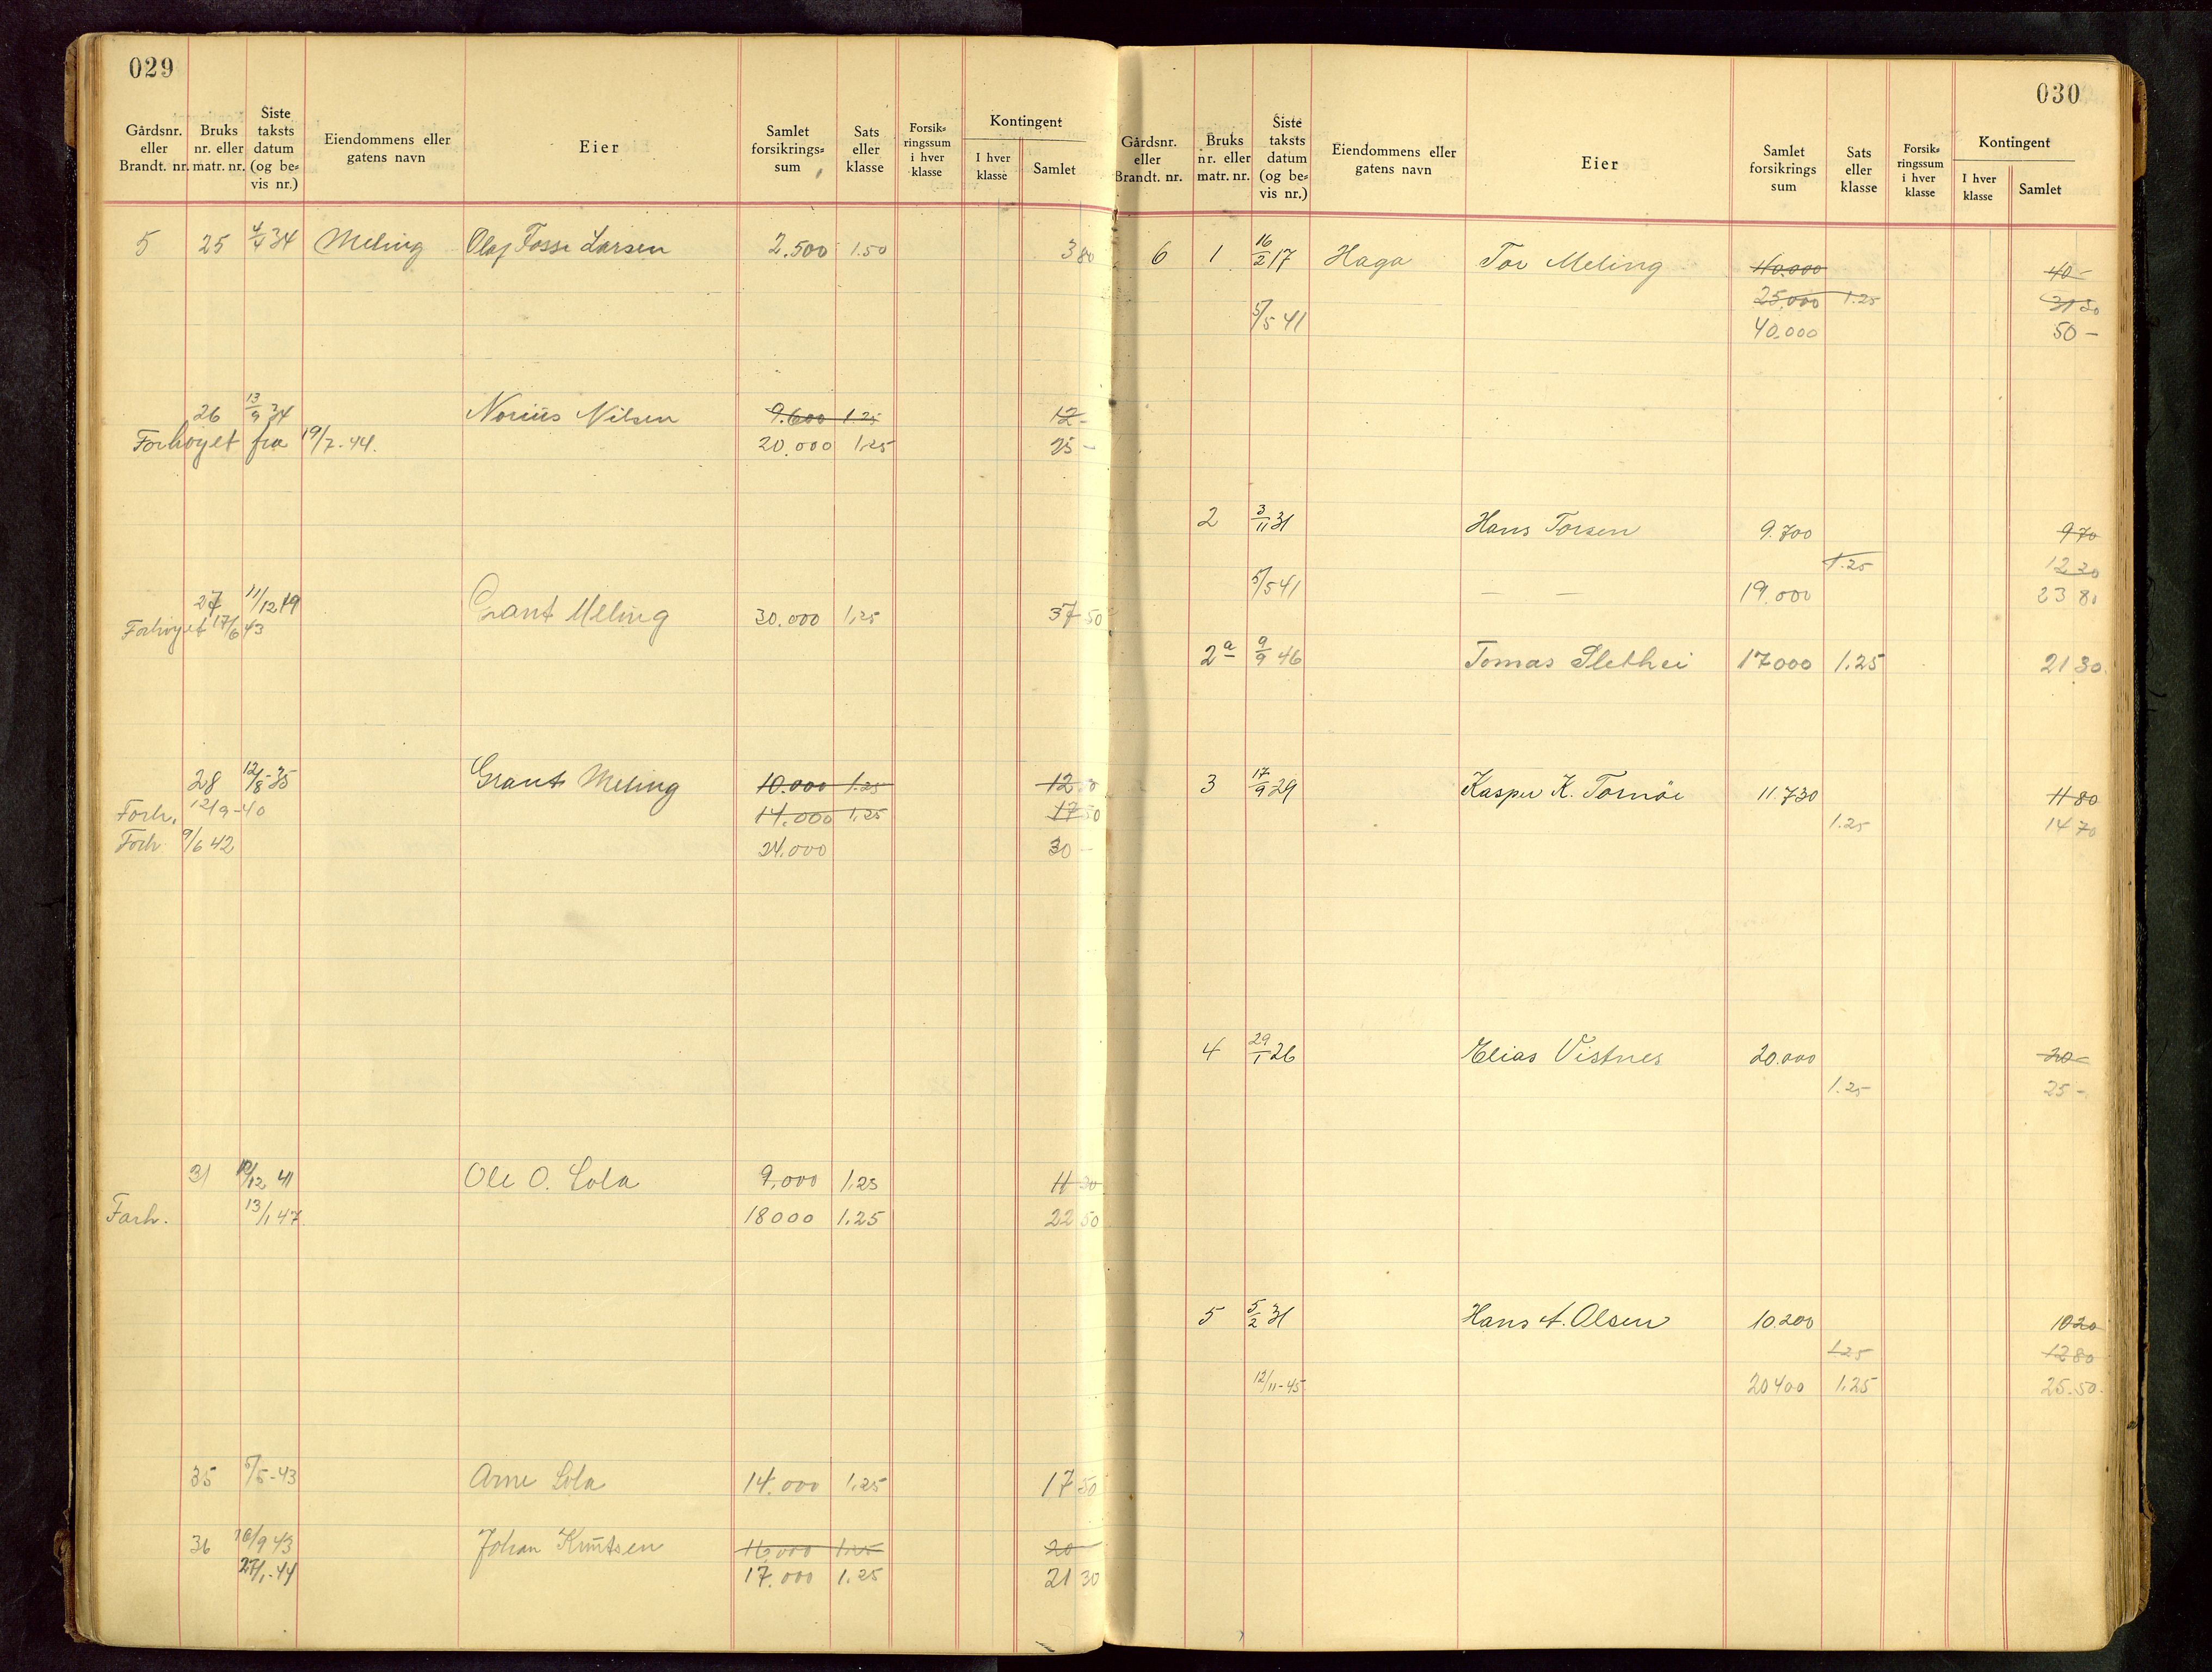 029
Gårdsnr. eller Brandt. nr. Bruks nr. eller matr. nr. Siste taksts datum (og be-vis nr.) Eiendommens eller gatens navn Eier Samlet forsikrings-sum Sats eller klasse Forsik-ringssum i hver klasse Kontingent I hver klasse Samlet
5 25 4/4 34 Meling Olaf Fosse Larsen 2.500 1.50 3 80
26 13/9 34 Norius Nilsen 9.600 1.25 12 -
Forhøyet fra 19/7-44. 20.000 1,25 25 -
27 11/12 19 Grant Meling 30.000 1,25 37 50
Forhøyet 17/6 43
28 12/8-35 Grant Meling 10.000 1.25 12 50
Forh. 12/9-40 14.000 1,25 17 50
Forh 9/6 42 24.000 30 -
31 10/12 41 Ole O. Sola 9,000 1,25 11 30
Forh. 13/1 47 18000 1.25 22 50
35 5/5-43 Arne Sola 14.000 1,25 17 50
36 10/9 43 Johan Knutsen 16,000 1.25 20 -
27/1-44 17.000 1.25 21 30
030
Gårdsnr. eller Brandt. nr. Bruks nr. eller matr. nr. Siste taksts datum (og be-vis nr.) Eiendommens eller gatens navn Eier Samlet forsikrings sum Sats eller klasse Forsik-ringssum i hver klasse Kontingent I hver klasse Samlet
6 1 16/2 17 Haga Tor Meling 40.000 40 -
25,000 1.25 31 30
5/5 41 40,000 50 -
2 3/11 31 Hans Torsen 9.700 9 70
1.25 12 20
5/5 41 — — 19.000 23 80
2a 9/9 46 Tomas Slethei 17000 1.25 21 30.
3 17/9 29 Kasper K. Tornøe 11.730 11 80
1.25 14 70
4 29/1 26 Elias Vistnes 20.000 20 -
1.25 25 -
5 5/2 31 Hans A. Olsen 10.200 10 20
1.25 12 80
12/11-45 20400 1.25 25.50.